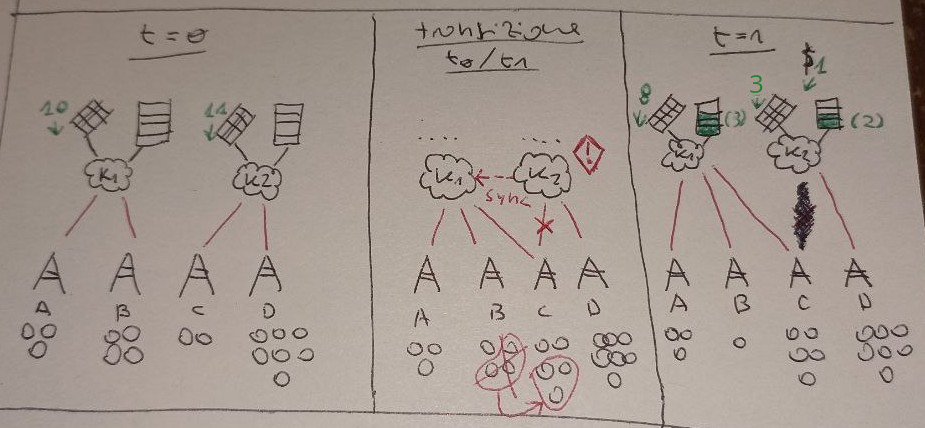 t = 0
10
11
K1
K2
A B C D
transizione
t0/t1
....
....
!
K1
K2
sync
A B C D
t = 1
$1
8
(3)
3
(2)
K1
K2
A B C D